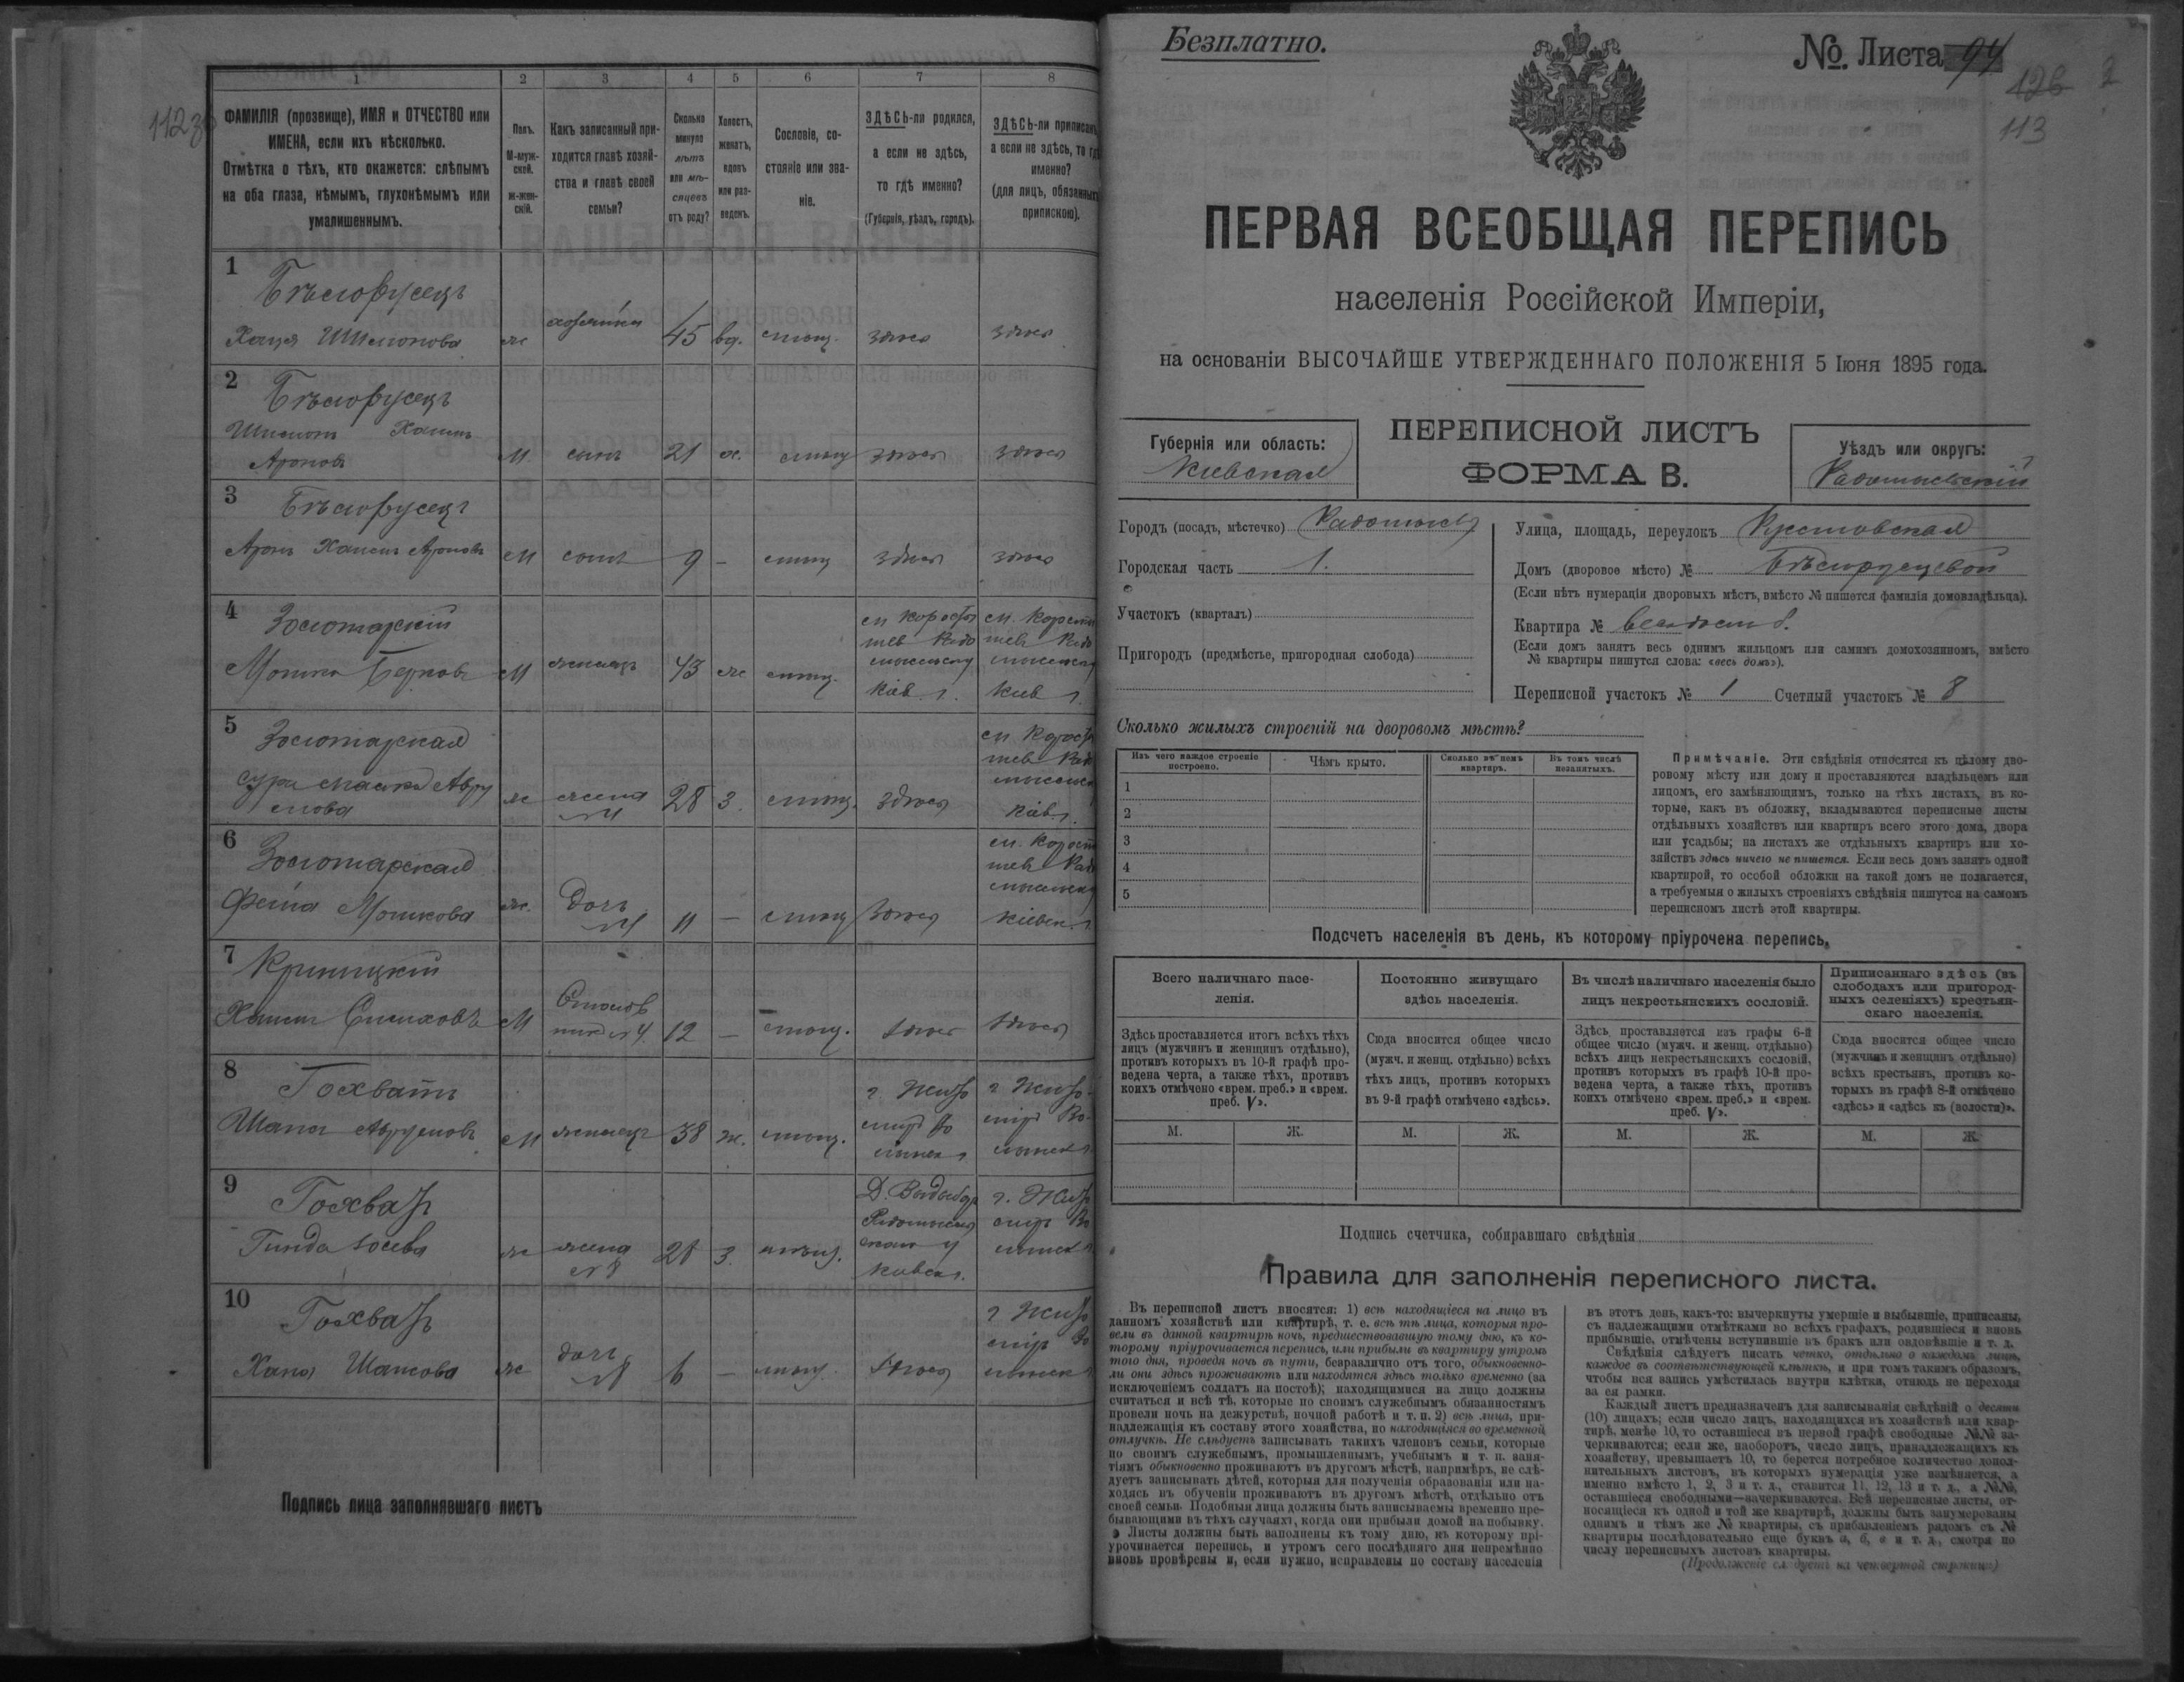 112 з
1 2 3 4 5 6 7 8
ФАМИЛІЯ (прозвище), ИМЯ и ОТЧЕСТВО или
ИМЕНА, если ихъ нѣсколько.
Отмѣтка о тѣхъ, кто окажется: слѣпымъ
на оба глаза, нѣмымъ, глухонѣмымъ или
умалишеннымъ.
Полъ.
М-муж-
ской.
Ж-жен-
скій.
Какъ записанный при-
ходится главѣ хозяй-
ства и главѣ своей
семьи?
Сколько
минуло
лѣтъ
или мѣ-
сяцевъ
отъ роду?
Холостъ,
женатъ,
вдовъ
или раз-
веденъ.
Сословіе, со-
стояніе или зва-
ніе.
ЗДѢСЬ-ли родился,
а если не здѣсь,
то гдѣ именно?
(Губернія, уѣздъ, городъ).
ЗДѢСЬ-ли приписанъ,
а если не здѣсь, то гдѣ
именно?
(для лицъ, обязанныхъ
припискою).
1
Бѣлорусецъ
Хася Шлиомова ж хозяйка 45 вд. мѣщ. здѣсь здѣсь
2
Бѣлорусецъ
Хаимъ
Ароновъ М. сынъ 21 х. мѣщ здѣсь здѣсь
3
Бѣлорусецъ
Аронъ Хаимъ Ароновъ М сынъ 9 – мѣщ здѣсь здѣсь
4
Золотарскій
Мошко Берковъ М жилецъ 43 ж мѣщ.
Кіев. г. Кіев г.
5
Золотарская
Сура Авру
мова ж жена 28 3. мѣщ. здѣсь
№4 Кіев г.
6
Золотарская
Фейга Мошкова ж. дочь 11 – мѣщ здѣсь Кіевск. г
№4
7
Криницкій
Хаимъ М 12 – мѣщ. здѣсь здѣсь
8
Гохватъ
Шапса Аврумовъ М жилецъ 38 ж. мѣщ.
г. Жито
миръ Во
лынск г.
г. Жито-
миръ Во-
лынск г
9
Гохватъ
Гинда Іосева ж жена 28 3. мѣщ.
№8
Кіевск г.
г. Жито
миръ Во
лынск г
10
Гохватъ
Хана Шапсова ж дочь 6 – мѣщ. здѣсь
№8
г Жито
миръ Во
лынск г
Подпись лица заполнявшаго листъ
Безплатно.
№. Листа 94
126 2
113
ПЕРВАЯ ВСЕОБЩАЯ ПЕРЕПИСЬ
населенія Россійской Имперіи,
на основаніи ВЫСОЧАЙШЕ УТВЕРЖДЕННАГО ПОЛОЖЕНІЯ 5 Іюня 1895 года.
Губернія или область:
Кіевская
ПЕРЕПИСНОЙ ЛИСТЪ
ФОРМА В.
Уѣздъ или округъ:
Радомысльскій
Городъ (посадъ, мѣстечко) Радомысль
Городская часть 1.
Участокъ (кварталъ)
Пригородъ (предмѣстье, пригородная слобода)
Улица, площадь, переулокъ Крестовская
Домъ (дворовое мѣсто) № Бѣлорусцевой
(Если нѣтъ нумераціи дворовыхъ мѣстъ, вмѣсто № пишется фамилія домовладѣльца).
Квартира №
(Если домъ занятъ весь однимъ жильцомъ или самимъ домохозяиномъ, вмѣсто
№ квартиры пишутся слова: «весь домъ»).
Переписной участокъ № 1 Счетный участокъ № 8
Сколько жилыхъ строеній на дворовомъ мѣстѣ?
Изъ чего каждое строеніе
построено.
Чѣмъ крыто.
Сколько въ немъ
квартиръ.
Въ томъ числѣ
незанятыхъ.
1
2
3
4
5
Примѣчаніе. Эти свѣдѣнія относятся къ цѣлому дво-
ровому мѣсту или дому и проставляются владѣльцемъ или
лицомъ, его замѣняющимъ, только на тѣхъ листахъ, въ ко-
торые, какъ въ обложку, вкладываются переписные листы
отдѣльныхъ хозяйствъ или квартиръ всего этого дома, двора
или усадьбы; на листахъ же отдѣльныхъ квартиръ или хо-
зяйствъ здѣсь ничего не пишется. Если весь домъ занятъ одной
квартирой, то особой обложки на такой домъ не полагается,
а требуемыя о жилыхъ строеніяхъ свѣдѣнія пишутся на самомъ
переписномъ листѣ этой квартиры.
Подсчетъ населенія въ день, къ которому пріурочена перепись,
Всего наличнаго насе-
ленія.
Постоянно живущаго
здѣсь населенія.
Въ числѣ наличнаго населенія было
лицъ некрестьянскихъ сословій.
Приписаннаго здѣсь (въ
слободахъ или пригород-
ныхъ селеніяхъ) крестьян-
скаго населенія.
Здѣсь проставляется итогъ всѣхъ тѣхъ
лицъ (мужчинъ и женщинъ отдѣльно),
противъ которыхъ въ 10-й графѣ про-
ведена черта, а также тѣхъ, противъ
коихъ отмѣчено «врем. преб.» и «врем.
преб. V».
Сюда вносится общее число
(мужч. и женщ. отдѣльно) всѣхъ
тѣхъ лицъ, противъ которыхъ
въ 9-й графѣ отмѣчено «здѣсь».
Здѣсь проставляется изъ графы 6-й
общее число (мужч. и женщ. отдѣльно)
всѣхъ лицъ некрестьянскихъ сословій,
противъ которыхъ въ графѣ 10-й про-
ведена черта, а также тѣхъ, противъ
коихъ отмѣчено «врем. преб.» и «врем.
преб. V».
Сюда вносится общее число
(мужчинъ и женщинъ отдѣльно)
всѣхъ крестьянъ, противъ ко-
торыхъ въ графѣ 8-й отмѣчено
«здѣсь» и «здѣсь къ (волости)».
М. Ж. М. Ж. М. Ж. М. Ж.
Подпись счетчика, собиравшаго свѣдѣнія
Правила для заполненія переписного листа.
Въ переписной листъ вносятся: 1) всѣ находящіеся на лицо въ
данномъ хозяйствѣ или квартирѣ, т. е. всѣ тѣ лица, которыя про-
вели въ данной квартирѣ ночь, предшествовавшую тому дню, къ ко-
торому пріурочивается перепись, или прибыли въ квартиру утромъ
того дня, проведя ночь въ пути, безразлично отъ того, обыкновенно-
ли они здѣсь проживаютъ или находятся здѣсь только временно (за
исключеніемъ солдатъ на постоѣ); находящимися на лицо должны
считаться и всѣ тѣ, которые по своимъ служебнымъ обязанностямъ
провели ночь на дежурствѣ, ночной работѣ и т. п. 2) всѣ лица, при-
надлежащія къ составу этого хозяйства, но находящіяся во временной
отлучкѣ. Не слѣдуетъ записывать такихъ членовъ семьи, которые
по своимъ служебнымъ, промышленнымъ, учебнымъ и т. п. заня-
тіямъ обыкновенно проживаютъ въ другомъ мѣстѣ, напримѣръ, не слѣ-
дуетъ записывать дѣтей, которыя для полученія образованія или на-
ходясь въ обученіи проживаютъ въ другомъ мѣстѣ, отдѣльно отъ
своей семьи. Подобныя лица должны быть записываемы временно пре-
бывающими въ тѣхъ случаяхъ, когда они прибыли домой на побывку.
Листы должны быть заполнены къ тому дню, къ которому прі-
урочивается перепись, и утромъ сего послѣдняго дня непремѣнно
вновь провѣрены и, если нужно, исправлены по составу населенія
въ этотъ день, какъ-то: вычеркнуты умершіе и выбывшіе, приписаны,
съ надлежащими отмѣтками во всѣхъ графахъ, родившіеся и вновь
прибывшіе, отмѣчены вступившіе въ бракъ или овдовѣвшіе и т. д.
Свѣдѣнія слѣдуетъ писать четко, отдѣльно о каждомъ лицѣ,
каждое въ соотвѣтствующей клѣткѣ, и при томъ такимъ образомъ,
чтобы вся запись умѣстилась внутри клѣтки, отнюдь не переходя
за ея рамки.
Каждый листъ предназначенъ для записыванія свѣдѣній о десяти
(10) лицахъ; если число лицъ, находящихся въ хозяйствѣ или квар-
тирѣ, менѣе 10, то оставшіеся въ первой графѣ свободные №№ за-
черкиваются; если же, наоборотъ, число лицъ, принадлежащихъ къ
хозяйству, превышаетъ 10, то берется потребное количество допол-
нительныхъ листовъ, въ которыхъ нумерація уже измѣняется, а
именно вмѣсто 1, 2, 3 и т. д., ставится 11, 12, 13 и т. д., а №№,
оставшіеся свободными—зачеркиваются. Всѣ переписные листы, от-
носящіеся къ одной и той же квартирѣ, должны быть занумерованы
однимъ и тѣмъ же № квартиры, съ прибавленіемъ рядомъ съ №
квартиры послѣдовательно еще буквъ а, б, в и т. д., смотря по
числу переписныхъ листовъ квартиры.
(Продолженіе слѣдуетъ на четвертой страницѣ)